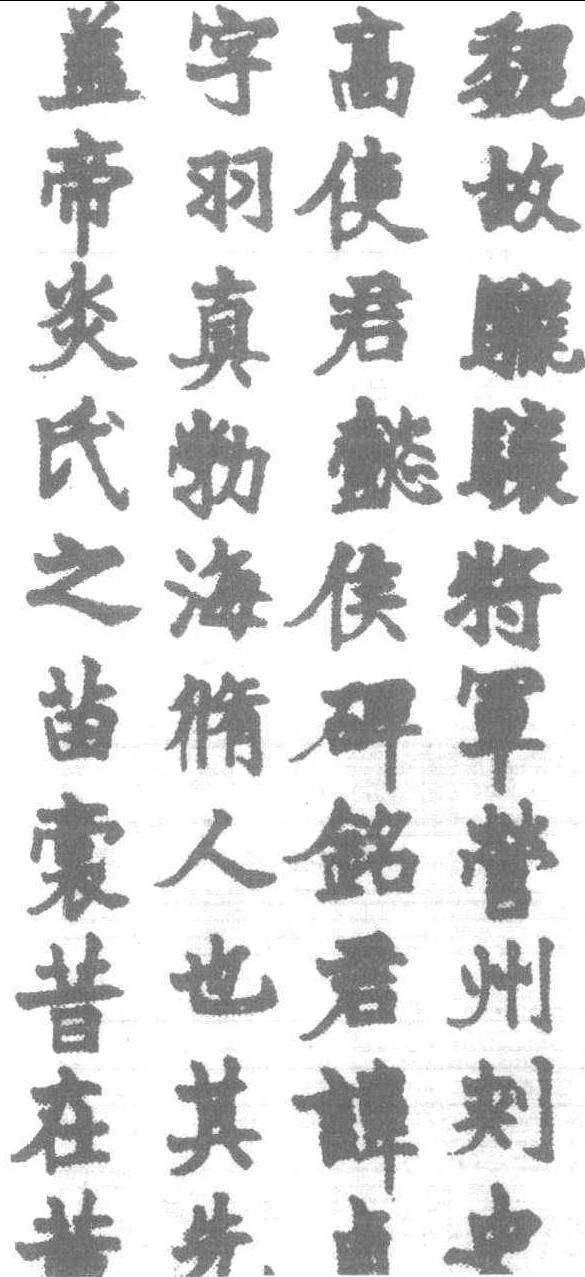 魏故驍驤將軍營州刺史
高使君懿侯碑銘君諱貞
字羽真勃海脩人也其先
盖帝炎氏之苗裔昔在